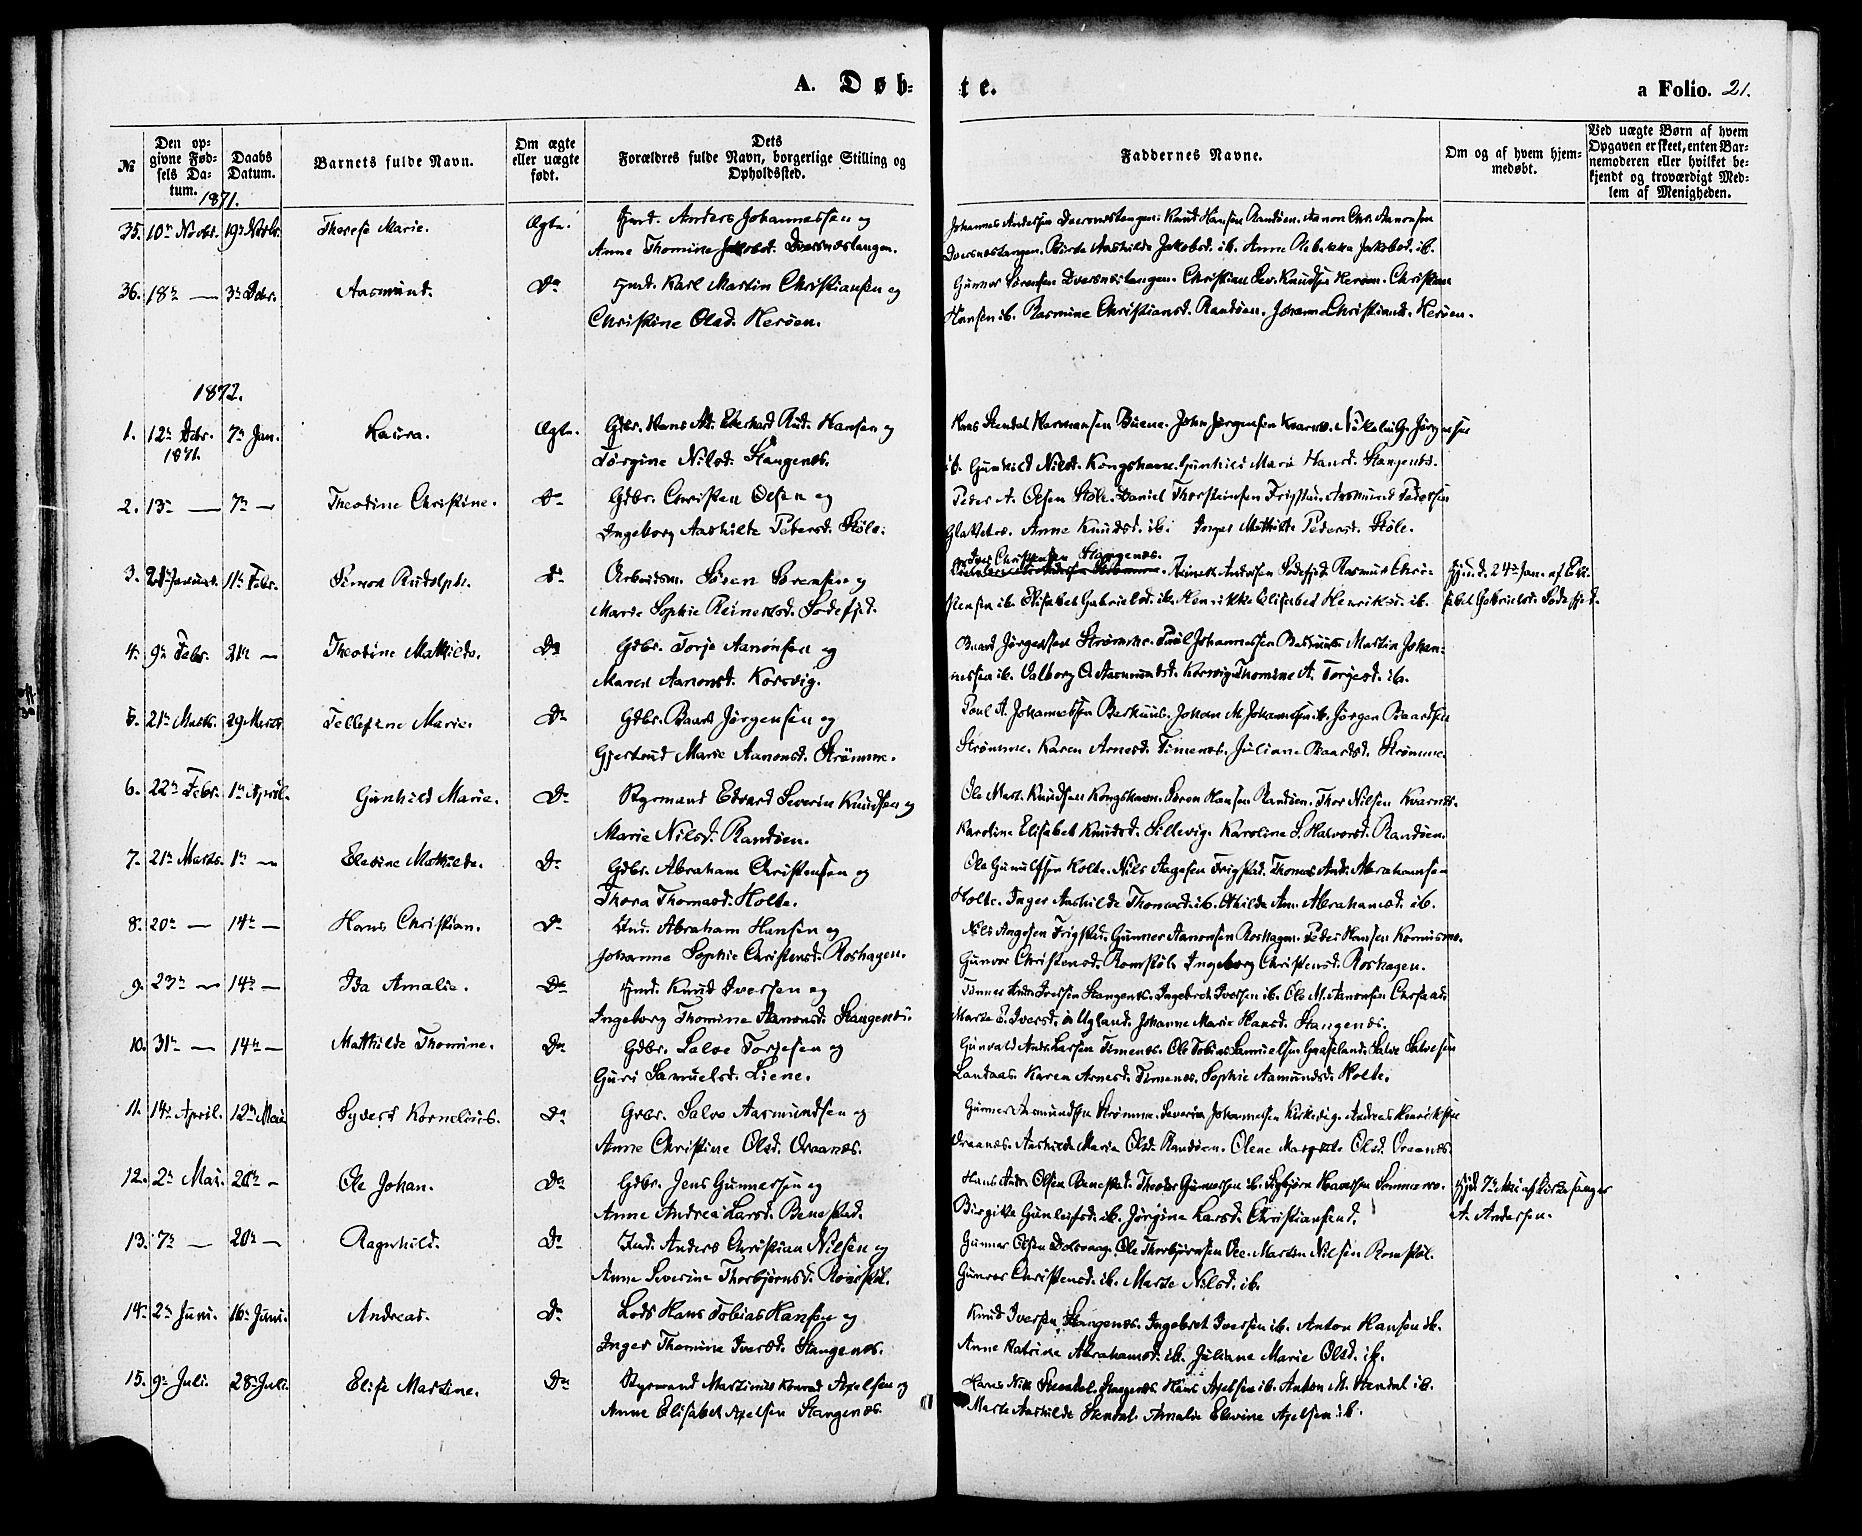 A. Døb-
te.
a Folio. 21.
№
Den op-
givne Fød-
sels Da-
tum.
Daabs
Datum.
Barnets fulde Navn.
Om ægte
eller uægte
født.
Dets
Forældres fulde Navn, borgerlige Stilling og
Opholdssted.
Faddernes Navne.
Om og af hvem hjem-
medøbt.
Ved uægte Børn af hvem
Opgaven er skeet, enten Bar-
nemoderen eller hvilket be-
kjendt og troværdigt Med-
lem af Menigheden.
1871.
35. 10de Novbr. 19de Novbr. Therese Marie. Ægte. Anders Johannessen og
Anne Thomine Jakobsd. Dversnestangen.
Johannes Andersen Dversnestangen. Knud Hansen Randøen. Aanon Chr. Aanonsen
Dversnestangen. Aashilde Jakobsd. ib. Anne Rebekka Jakobsd. ib.
36. 18de — 3de Dcbr. Aasmund. Do Karl Martin Christiansen og
Christine Olsd. Herøen.
Gunner Sørensen Dversnestangen. Christian Sev. Knudsen Herøen. Christian
Hansen ib. Rasmine Christiansd. Randøen. Johanne Christiansd. Herøen.
1872.
1. 12te Dcbr. 7de Jan. Laura. Ægte. Gdbr. Hans Ad. Eberhard Rud. Hansen og
1871.
Jørgine Nilsd. Stangenes.
Hans Stendal Hermansen Buene. John Jørgensen Kvarnes. Nikolai G. Jørgensen
ib. Gunhild Nilsd. Kongshavn. Gunhild Marie Hansd. Stangenes.
2. 13de — 7de — Theodine Christine. Do Gdbr. Christen Olsen og
Ingeborg Aashilde Pedersd. Støle.
Peder A. Olsen Støle. Daniel Thorsteinsen Frigstad. Aasmund Pedersen
Glattetre. Anne Knudsd. ib. Inger Mathilde Pedersd. Støle.
3. 21de Januar. 11te Febr. Simon Rudolph. Do Arbeidsm. Søren Sørensen og
Marie Sophie Reinertsd. Sodefjed.
Christensen Stangenes.
Reinert Andersen Sodefjed. Rasmus Chri-
stensen ib. Elisabet Gabrielsd. ib. Henrikke Elisabet Henriksd. ib.
Hjmd. 24de Jan. af Eli-
sabet Gabrielsd. Sodefjed.
4. 9de Febr. 21de — Theodine Mathilde. Do Gdbr. Torje Aanonsen og
Maren Aanonsd. Korsvig.
Baard Jørgensen Strømme. Poul Johannessen Beskuus. Martin Johan-
nessen ib. Valborg O. Aasmundsd. Korsvig. Thomine A. Torjesd. ib.
5. 21de Marts. 29 Marts. Tellefine Marie. Do Gdbr. Baard Jørgensen og
Gjertrud Marie Aanonsd. Strømme.
Poul A. Johannessen Beskuus. Johan M. Johannessen ib. Jørgen Baardsen
Strømme. Karen Arnesd. Timenes. Juliane Baardsd. Strømme.
6. 22de Febr. 1ste April. Gunhild Marie. Do Styrmand Edvard Severin Knudsen og
Marie Nilsd. Randøen.
Ole Mart. Knudsen Kongshavn. Søren Hansen Randøen. Thor Nilsen Kvarnes.
Karoline Elisabet Knudsd. Sillevig. Karoline S. Halvorsd. Randøen.
7. 21de Marts. 1ste — Elevine Mathilde. Do Gdbr. Abraham Christensen og
Thora Thomasd. Holte.
Ole Gunulfsen Holte. Nils Aagesen Frigstad. Thomas Andr. Abrahamsen
Holte. Inger Aashilde Thomasd. ib. Athilde Ann. Abrahamsd. ib.
8. 20de — 14de — Hans Christian. Do Abraham Hansen og
Johanne Sophie Christensd. Roshagen.
Nils Aagesen Frigstad. Gunner Aanonsen Roshagen. Peder Hansen
Gunvor Christensd. Romstøl. Ingeborg Christensd. Roshagen.
9. 23de — 14de — Ida Amalie. Do Knud Iversen og
Ingeborg Thomine Aanonsd. Stangenes.
Tønnes Andr. Iversen Stangenes. Ingebret Iversen ib. Ole M. Aanonsen
Marte P. Iversd. Ugland. Johanne Marie Hansd. Stangenes.
10. 31te — 14de — Mathilde Thomine. Do Gdbr. Salve Torjesen og
Guri Samuelsd. Liene.
Gunvald Andr. Larsen Timenes. Ole Tobias Samuelsen Salve Salvesen
Landaas. Karen Arnesd. Timenes. Sophie Aamundsd. Holte.
11. 14de April. 12te Mai Syvert Kornelius. Do Gdbr. Salve Aasmundsen og
Anne Christine Olsd. Draanes.
Gunner Asmundsen Strømme. Severin Johannessen Kirkevig. Andreas Henriksen
Aashilde Marie Olsd. Randøen. Olene Margrete Olsd.
12. 2de Mai. 20de — Ole Johan. Do Gdbr. Jens Gunnersen og
Anne Andrea Larsd. Benestad.
Hans Andr. Olsen Benestad. Theodor Gunnersen ib. Sommero.
Birgitte Gunleifsd. ib. Jørgine Larsd. Christiansand.
Hjd. 7de Mai af Kirkesanger
A. Andersen.
13. 7de — 20de — Ragnhild. Do Anders Christian Nilsen og
Anne Severine Thorbjørnsd. Romstøl.
Gunner Olsen Dolsvaag. Ole Thorbjørnsen Vee. Morten Nilsen Romstøl.
Gunvor Christensd. ib. Marte Nilsd. ib.
14. 2de Juni. 16de Juni. Andreas. Do Lods Hans Tobias Hansen og
Inger Thomine Iversd. Stangenes.
Knud Iversen Stangenes. Ingebret Iversen ib. Anton Hansen ib.
Anne Katrine Abrahamsd. ib. Juliane Marie Olsd. ib.
15. 9de Juli. 28de Juli. Elise Martine. Do Styrmand Martinius Konrad Axelsen og
Anne Elisabet Axelsen Stangenes.
Hans Nik. Stendal Stangenes. Hans Axelsen ib. Anton M. Stendal ib.
Marte Aashilde Stendal. Amalie Elevine Axelsen ib.